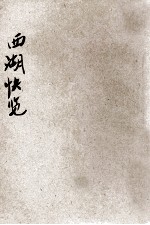 西湖快览